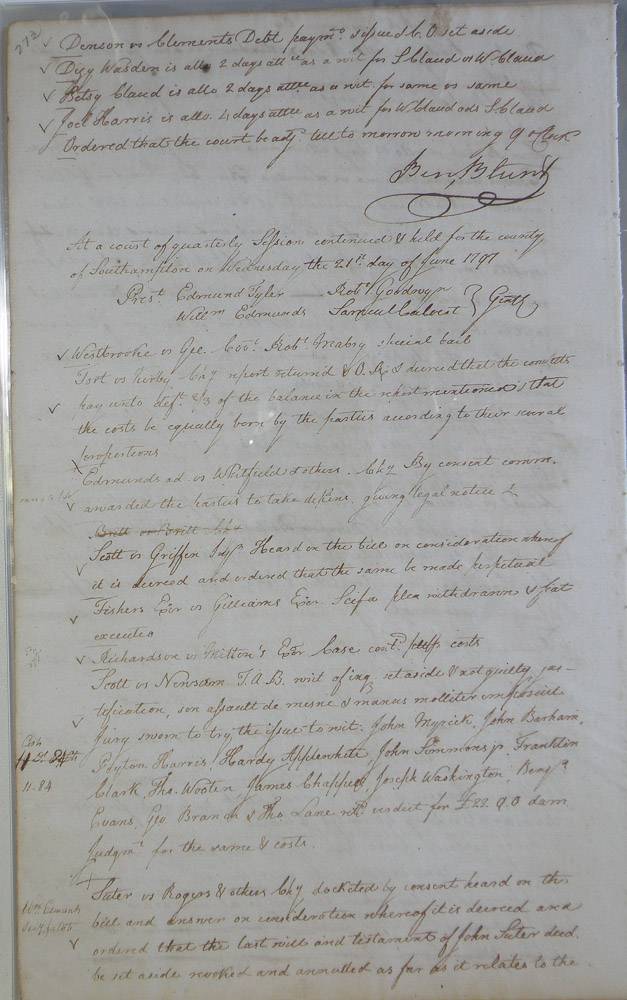 272
Denson vs Clements Debt paymo. & issue & C. O set aside
Dizy Wasden is allo 2 days attce as a wit for S Claud vs W Claud
Betsy Claud is allo 2 days attce as a wit for same vs same
Joel Harris is allo. 4 days attce as a wit for W Claud ads S Claud
Ordered that the court be adjd. till to morrow morning 9 oClock
Ben, Blunt
At a court of quarterly Session continued & held for the county
of Southampton on Wednesday the 21st. day of June 1797
Prest. Edmund Tyler Robt. Goodwyn
Willm Edmunds Samuel Calvert } Gentn
Westbrooke vs Gee. Covt. Robt. Mabry special bail
vs Kirby Chy report returnd & O. R & decreed that the
pay unto deft. 2/3 of the balance in the report mentioned & that
the costs be equally born by the parties according to their several
proportions
Edmunds ad vs Whitfield & others. Chy By consent comm.
awarded the parties to take depions. giving legal notice &
Britt vs Britt Chy
Scott vs Griffin Injn Heard on the bill on consideration whereof
it is decreed and ordered that the same be made perpetual
Fishers Exor vs Gilliams Exor Scifa plea withdrawn & fiat
executio
Richardson vs Mitton's Exor Case contd. pltffs costs
Scott vs Newsum T. A. B. writ of inq set aside & not guilty jus-
tification, son assault de mesne & manus molliter imposuit
Jury sworn to try the issue to wit. John Myrick, John Barham,
Peyton Harris, Hardy Applewhite, John Simmons jr Franklin
Clark, Tho. Wooten James Chappell, Joseph Washington, Benja.
Evans, Geo Branch & Tho. Lane verdict for £22. 9. 0 dam
Judgmt for the same & costs.
11.84
Suter vs Rogers & others Chy docketed by consent heard on the
bill and answer on consideration whereof it is decreed and
ordered that the last will and testament of John Suter deed.
be set aside revoked and annulled as far as it relates to the